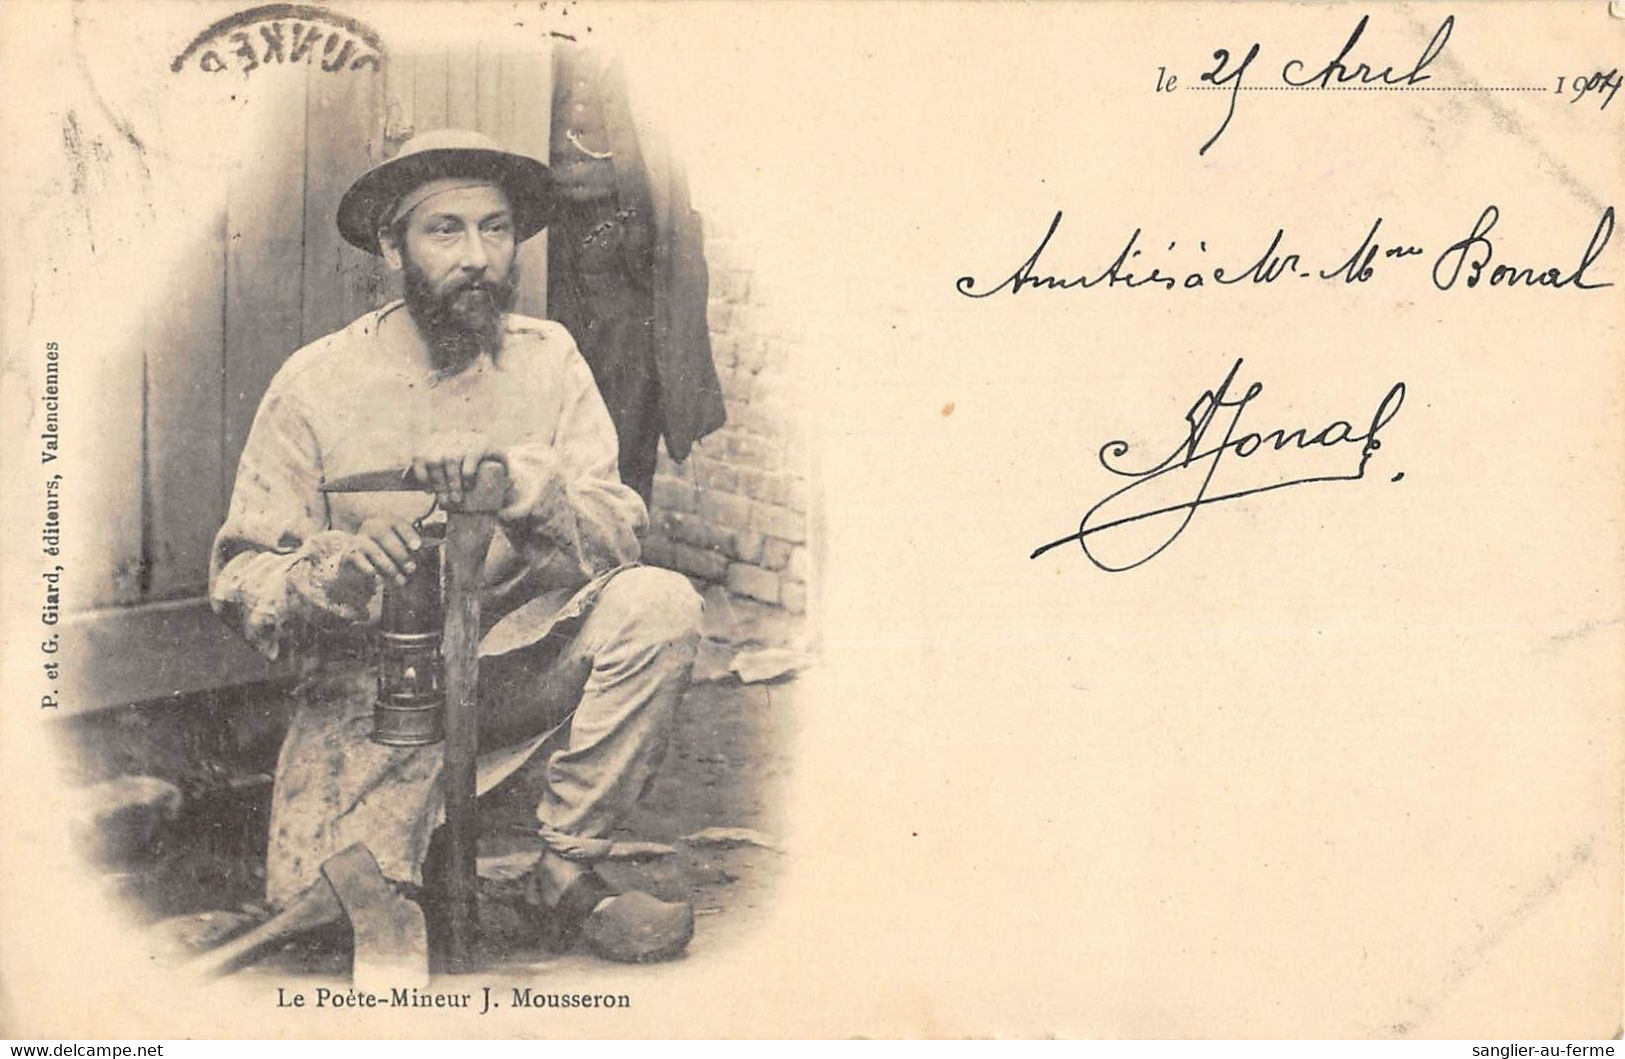 DUNKER
le 25 Avril 1904
Amitiés à Mr. Mme Bonal
P. et G. Giard, éditeurs, Valenciennes
Le Poète-Mineur J. Mousseron
delcampe.net
sanglier-au-ferme